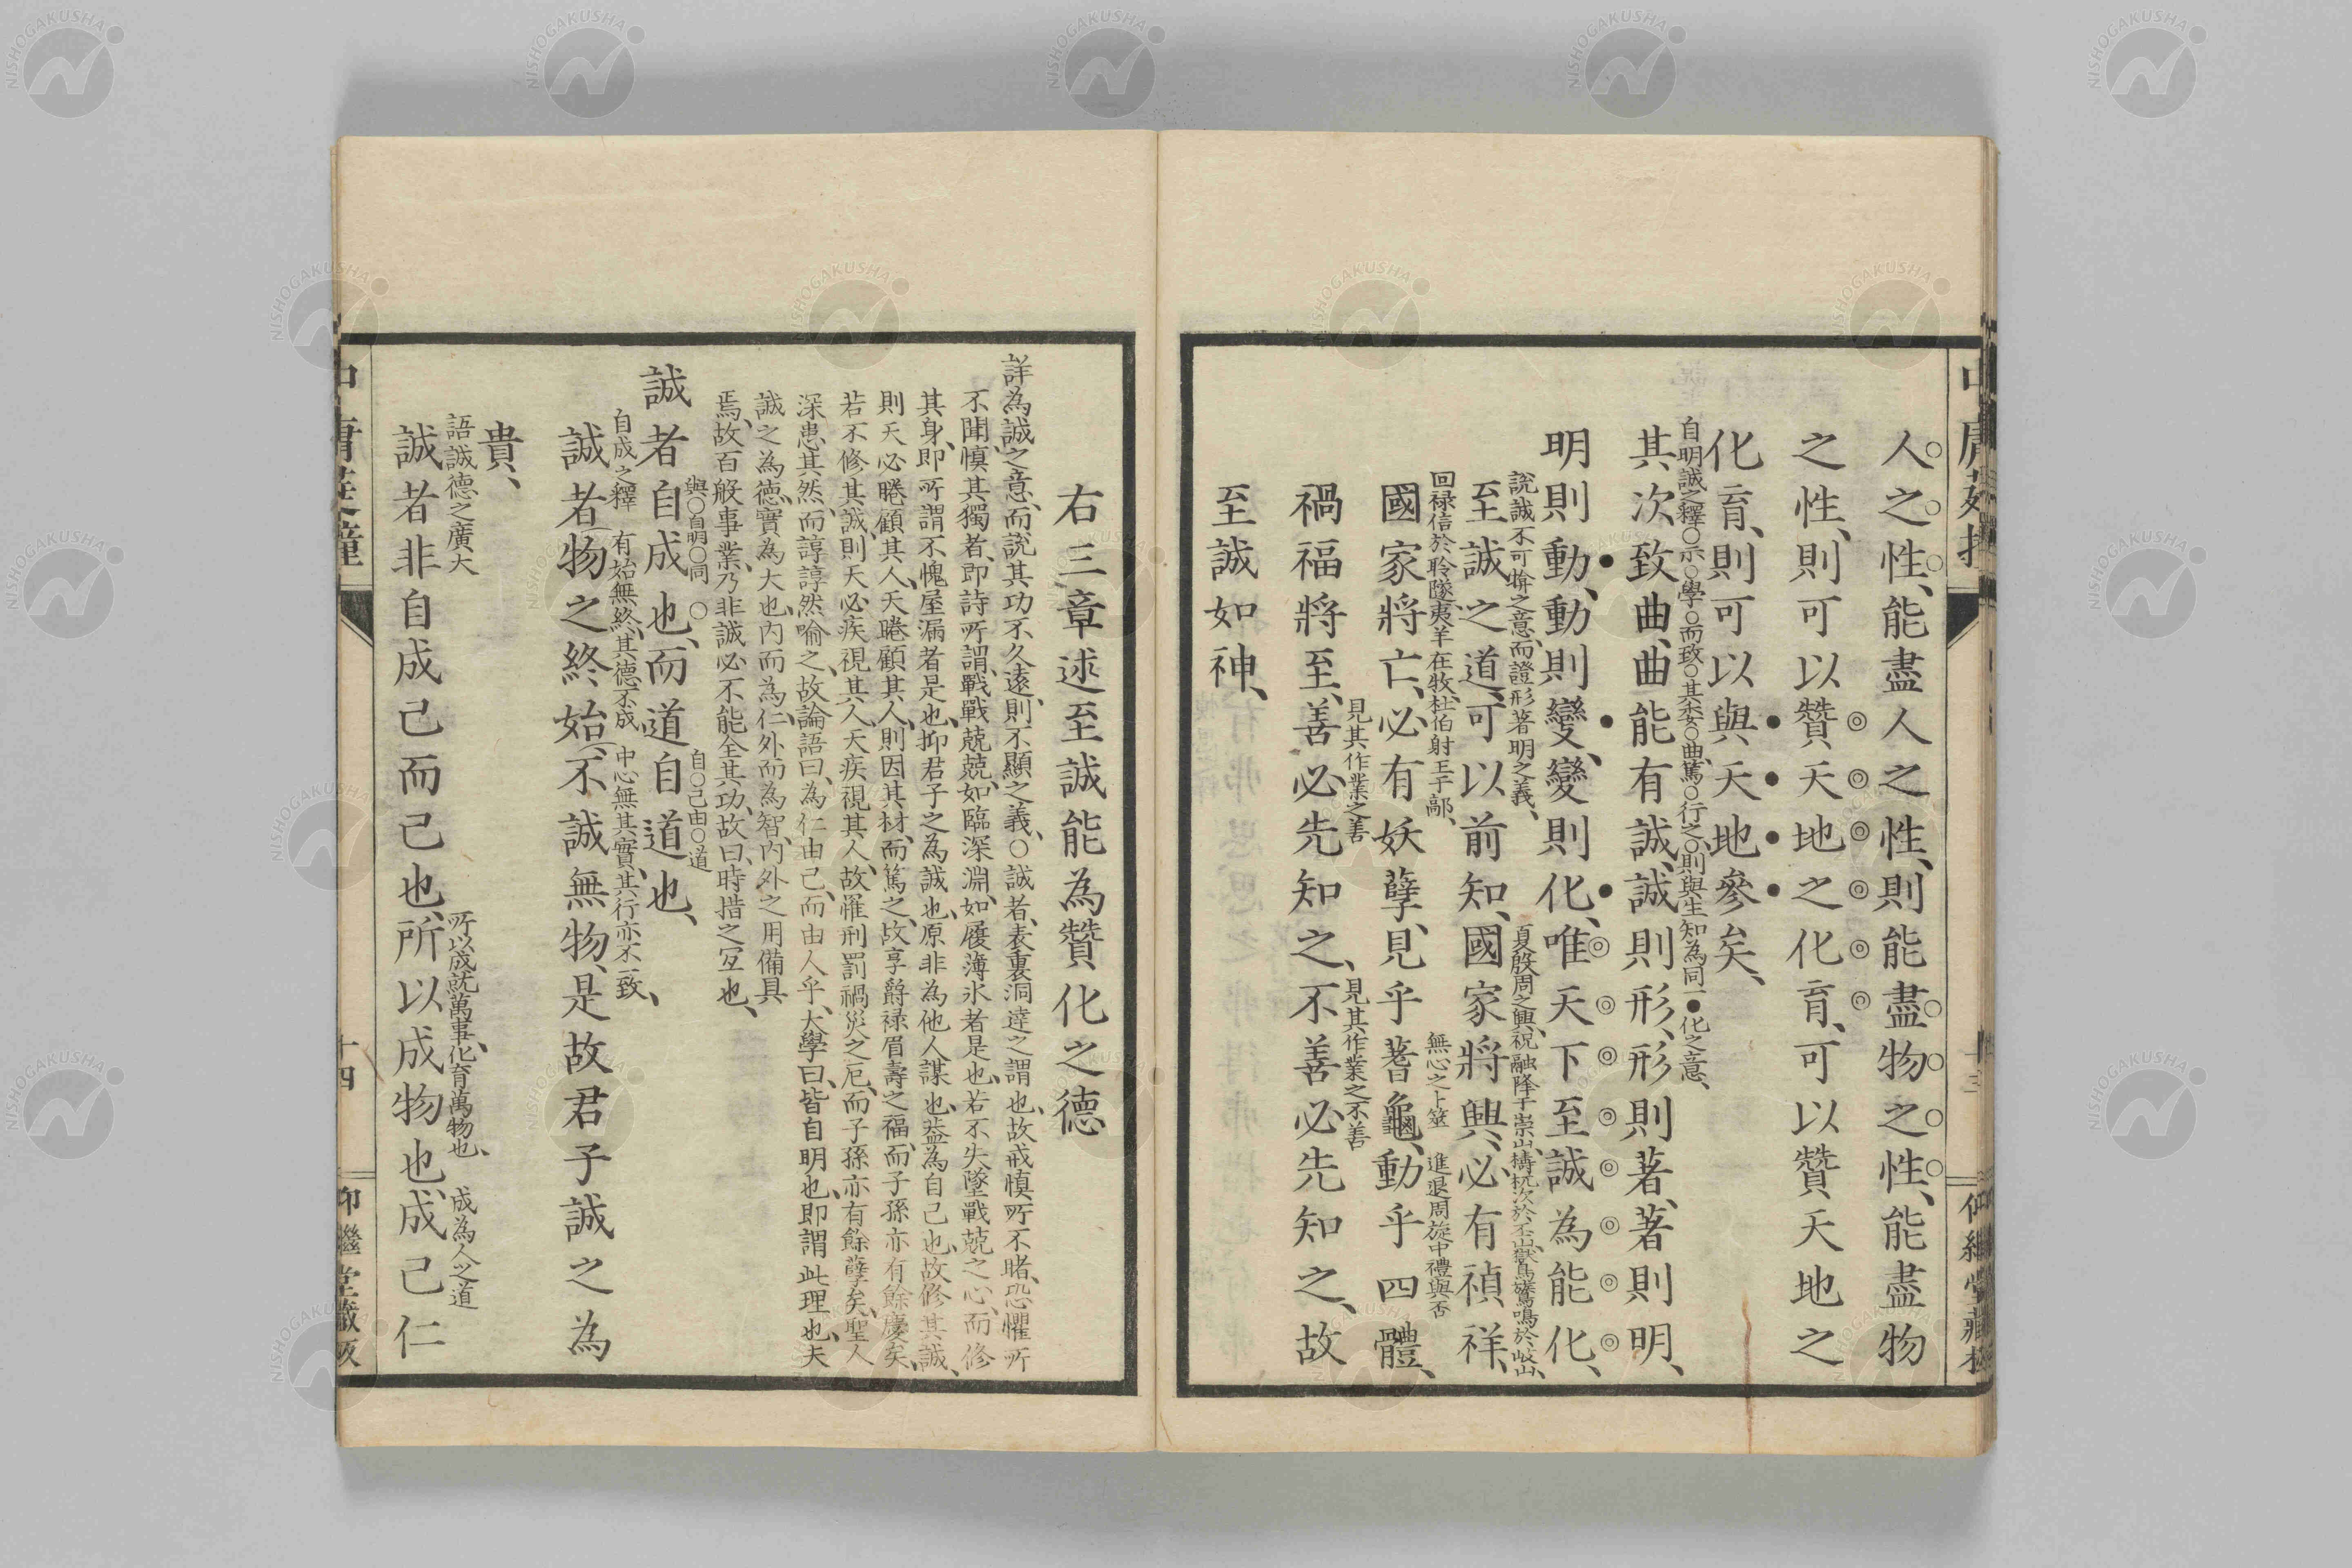 人之性、能盡人之性、則能盡物之性、能盡物
之性、則可以贊天地之化育、可以贊天地之
化育、則可以與天地參矣、
自明誠之釋○示○學○而致○其委○曲、篤○行之○則與生知為同一●化之意、
其次致曲、曲能有誠、誠則形、形則著、著則明、
明則動、動則變、變則化、唯天下至誠為能化、
說誠不可揜之意、而證形著明之義、 夏殷周之興、祝融降于崇山、檮杌次於丕山、鸑鷟鳴於岐山、
至誠之道、可以前知、國家將興、必有禎祥、
回禄信於聆隧、夷羊在牧、杜伯射王于鄗、 無心之卜筮 進退周旋中禮與否
國家將亡、必有妖孽、見乎蓍龜、動乎四體、
見其作業之善 見其作業之不善
禍福將至、善必先知之、不善必先知之、故
至誠如神、
右三章述至誠能為贊化之德
詳為誠之意、而說其功不久遠、則不顯之義、○誠者、表裏洞達之謂也、故戒慎所不睹、恐懼所
不聞、慎其獨者、即詩所謂、戰戰兢兢、如臨深淵、如履薄氷者是也、若不失墜戰兢之心、而修
其身、即所謂不愧屋漏者是也、抑君子之為誠也、原非為他人謀也、益為自己也、故修其誠、
則天必睠顧其人、天睠顧其人、則因其材、而篤之、故享爵禄眉壽之福、而子孫亦有餘慶矣、
若不修其誠、則天必疾視其人、天疾視其人、故罹刑罰禍災之厄、而子孫亦有餘孽矣、聖人
深患其然、而諄諄然喻之、故論語曰、為仁由己、而由人乎、大學曰、皆自明也、即謂此理也、夫
誠之為德、實為大也、内而為仁、外而為智、内外之用備具
焉、故百般事業、乃非誠必不能全其功、故曰、時措之宜也、
與○自明○同 ○ 自○己由○道
誠者自成也、而道自道也、
自成之釋 有始無終、其德不成 中心無其實、其行亦不一致、
誠者物之終始、不誠無物、是故君子誠之為
貴、
語誠德之廣大 所以成就萬事、化育萬物也、 成為人之道
誠者非自成己而已也、所以成物也、成己仁
十四